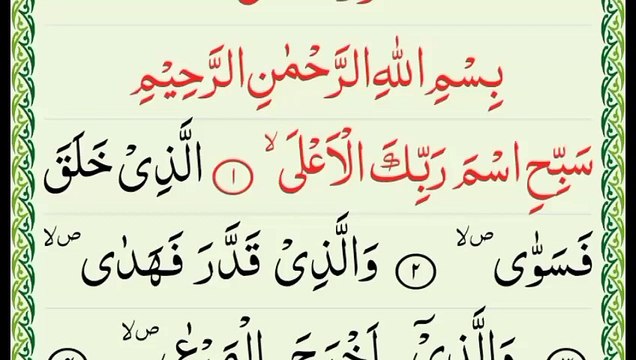 بِسْمِ اللهِ الرَّحْمٰنِ الرَّحِيْمِ
سَبِّحِ اسْمَ رَبِّكَ الْاَعْلَى ۙ ۱ الَّذِىْ خَلَقَ
فَسَوّٰى ۙ ص ۲ وَالَّذِىْ قَدَّرَ فَهَدٰى ۙ ص
وَالَّذِىْۤ اَخْرَجَ الْمَرْعٰى ۙ ص